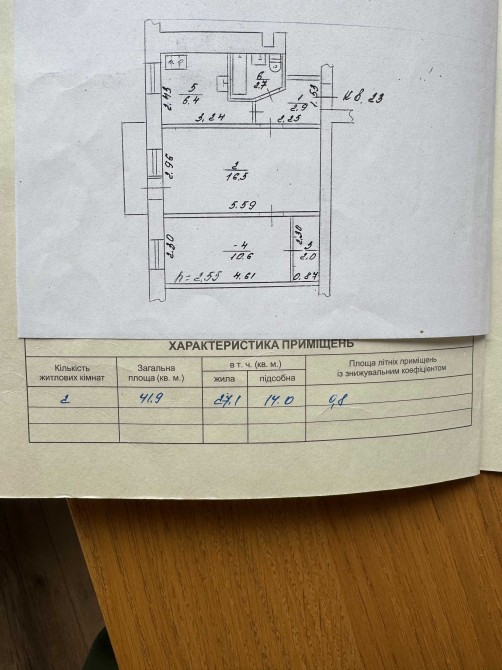 6
2.7
5
6.4
1
2.9
1.53
кв. 23
2.43
3,24
2.25
2.96
2
16.5
5.59
2.30
4
10.6
2.30
3
2.0
h=2,55
4.61
0.87
ХАРАКТЕРИСТИКА ПРИМІЩЕНЬ
Кількість
житлових кімнат
Загальна
площа (кв. м.)
в т. ч. (кв. м.)
жила
підсобна
Площа літніх приміщень
із знижувальним коефіцієнтом
2
41.9
27.1
14.0
0,8